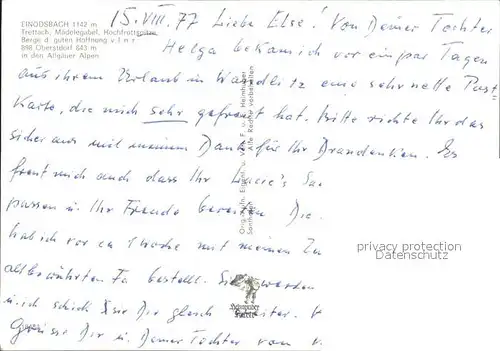 EINÖDSBACH 1142 m
Trettach, Mädelegabel, Hochfrottspitze
Berge d. guten Hoffnung v. l n r
898 Oberstdorf 843 m
in den Allgäuer Alpen
15. VIII. 77 Liebe Else! Von Deiner Tochter
Helga bekam ich vor ein paar Tagen
aus ihrem Urlaub in Wandlitz eine sehr nette Post-
Karte, die mich sehr gefreut hat. Bitte richte Ihr das
sicher aus mit meinem Dank für Ihr Drandenken. Es
freut mich auch dass Ihr Lucie's
passen u. Ihr Freude bereiten Die
hab ich vor ca 1 Woche mit meinen
altbewährten Fa bestellt. Sie werden
u. ich schick Sie Dir gleich weiter.
Grüsse Dir u. Deiner Tochter von
Alle Rechte vorbehalten
privacy protection
www.ansichtskarten-center.de